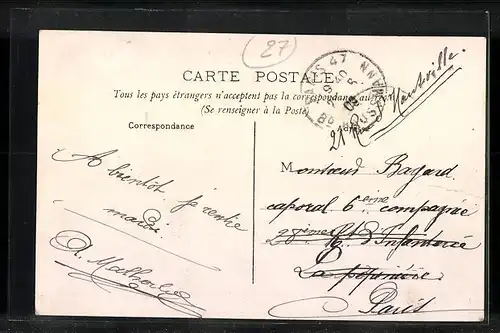 27
CARTE POSTALE
Tous les pays étrangers n'acceptent pas la correspondance au
(Se renseigner à la Poste)
Correspondance
PARIS 47
HAUSSMANN
A bientôt. Je rentre
mardi.
A.
Monsieur Bayard
caporal 6ème compagnie
d'Infanterie
La pépinière
Paris